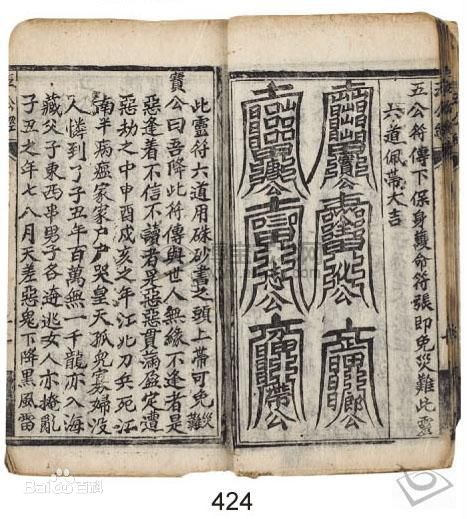 五公符傳下保身護命符張即免災難此靈
六道佩帶大吉
此靈符六道用硃砂書之頭上帶可免災難
寶公曰吾降此符傳與世人無緣不逢者是
惡逢着不信不讀者是惡惡貫滿盈定遭
惡劫之中申酉戌亥之年江北刀兵死江
南羊病瘟家家戶戶哭皇天孤兒寡婦没
人憐到了子丑年百萬無一千龍亦入海
藏父子東西串男子各逃女人亦掩亂
子丑之年七八月天差惡鬼下降黑風雷
五公經
Baidu百科
424